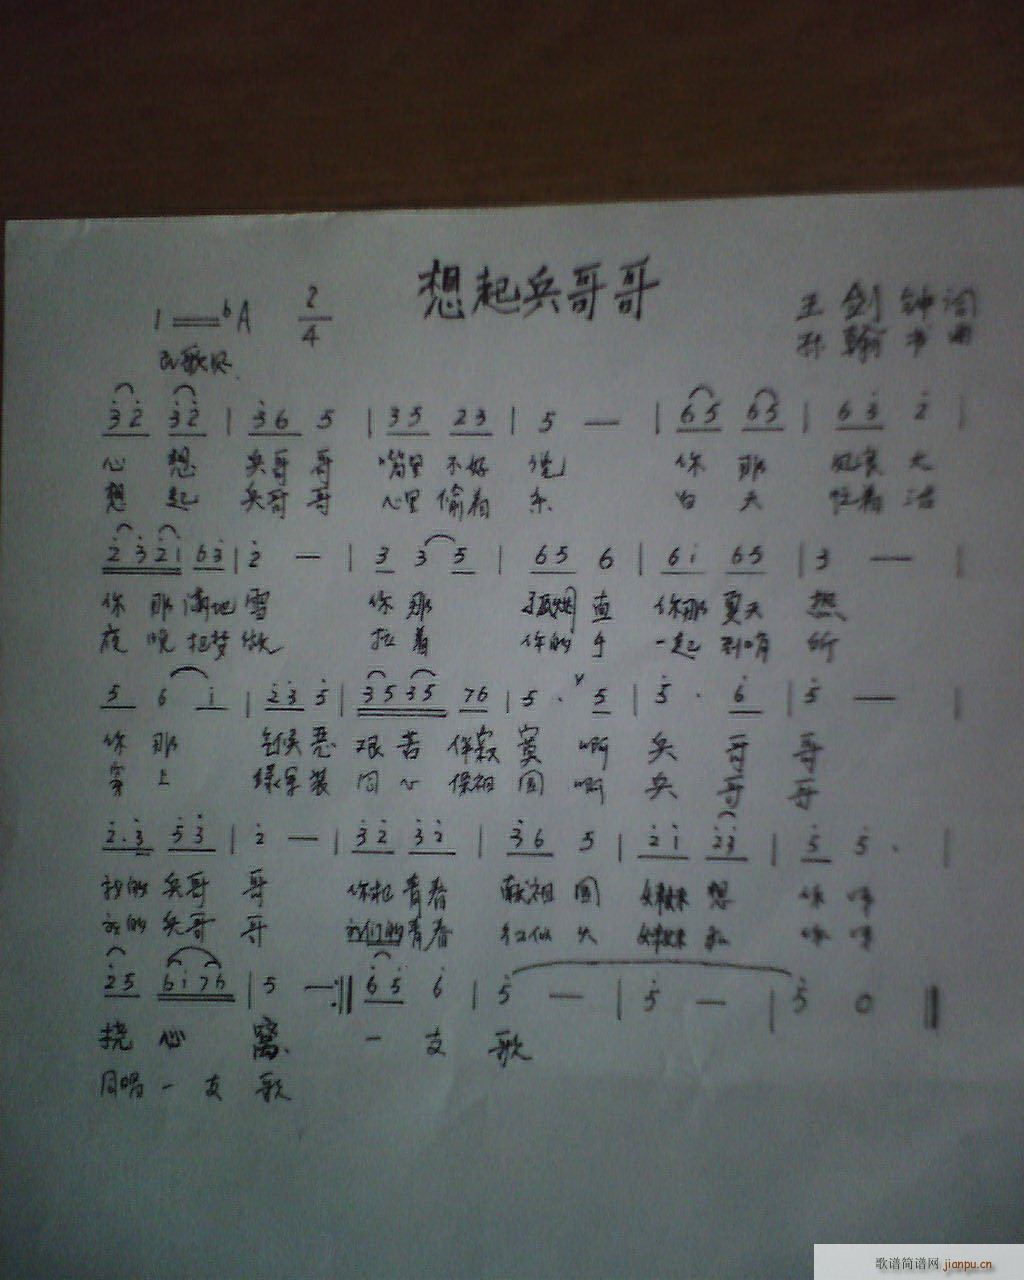 想起兵哥哥
1=♭A 2/4
王剑钟词
孙翰书曲
民歌风
3̇2̇ 3̇2̇ | 3̇6 5 | 35 23 | 5 — | 65 65 | 63̇ 2̇ |
心想 兵哥哥 嘴里不好说 你那 风浪大
想起 兵哥哥 心里偷着乐 白天 忙着活
2̇3̇2̇1̇ 63̇ | 2̇ — | 3 3 5 | 65 6 | 6i 65 | 3 — |
你那满地雪 你那 孤烟直 你那夏天热
夜晚把梦做 拉着 你的手 一起到哨所
5 6 i | 2̇3̇ 5̇ | 3535 76 | 5. ∨ 5 | 5̇. 6̇ | 5̇ — |
你那 气候恶 艰苦伴寂寞 啊 兵哥哥
穿上 绿军装 同心保祖国 啊 兵哥哥
2̇.3̇ 5̇3̇ | 2̇ — | 3̇2̇ 3̇2̇ | 3̇6 5 | 2̇1̇ 2̇3̇ | 5̇ 5̇. |
我的兵哥哥 你把青春 献祖国 妹妹想 你呀
我的兵哥哥 我们的青春 红似火 妹妹和 你呀
2̇5 6i76 | 5 — :‖ 6̇5̇ 6̇ | 5̇ — | 5̇ — | 5̇ 0 ‖
挠心窝 一支歌
同唱一支歌
歌谱简谱网 jianpu.cn